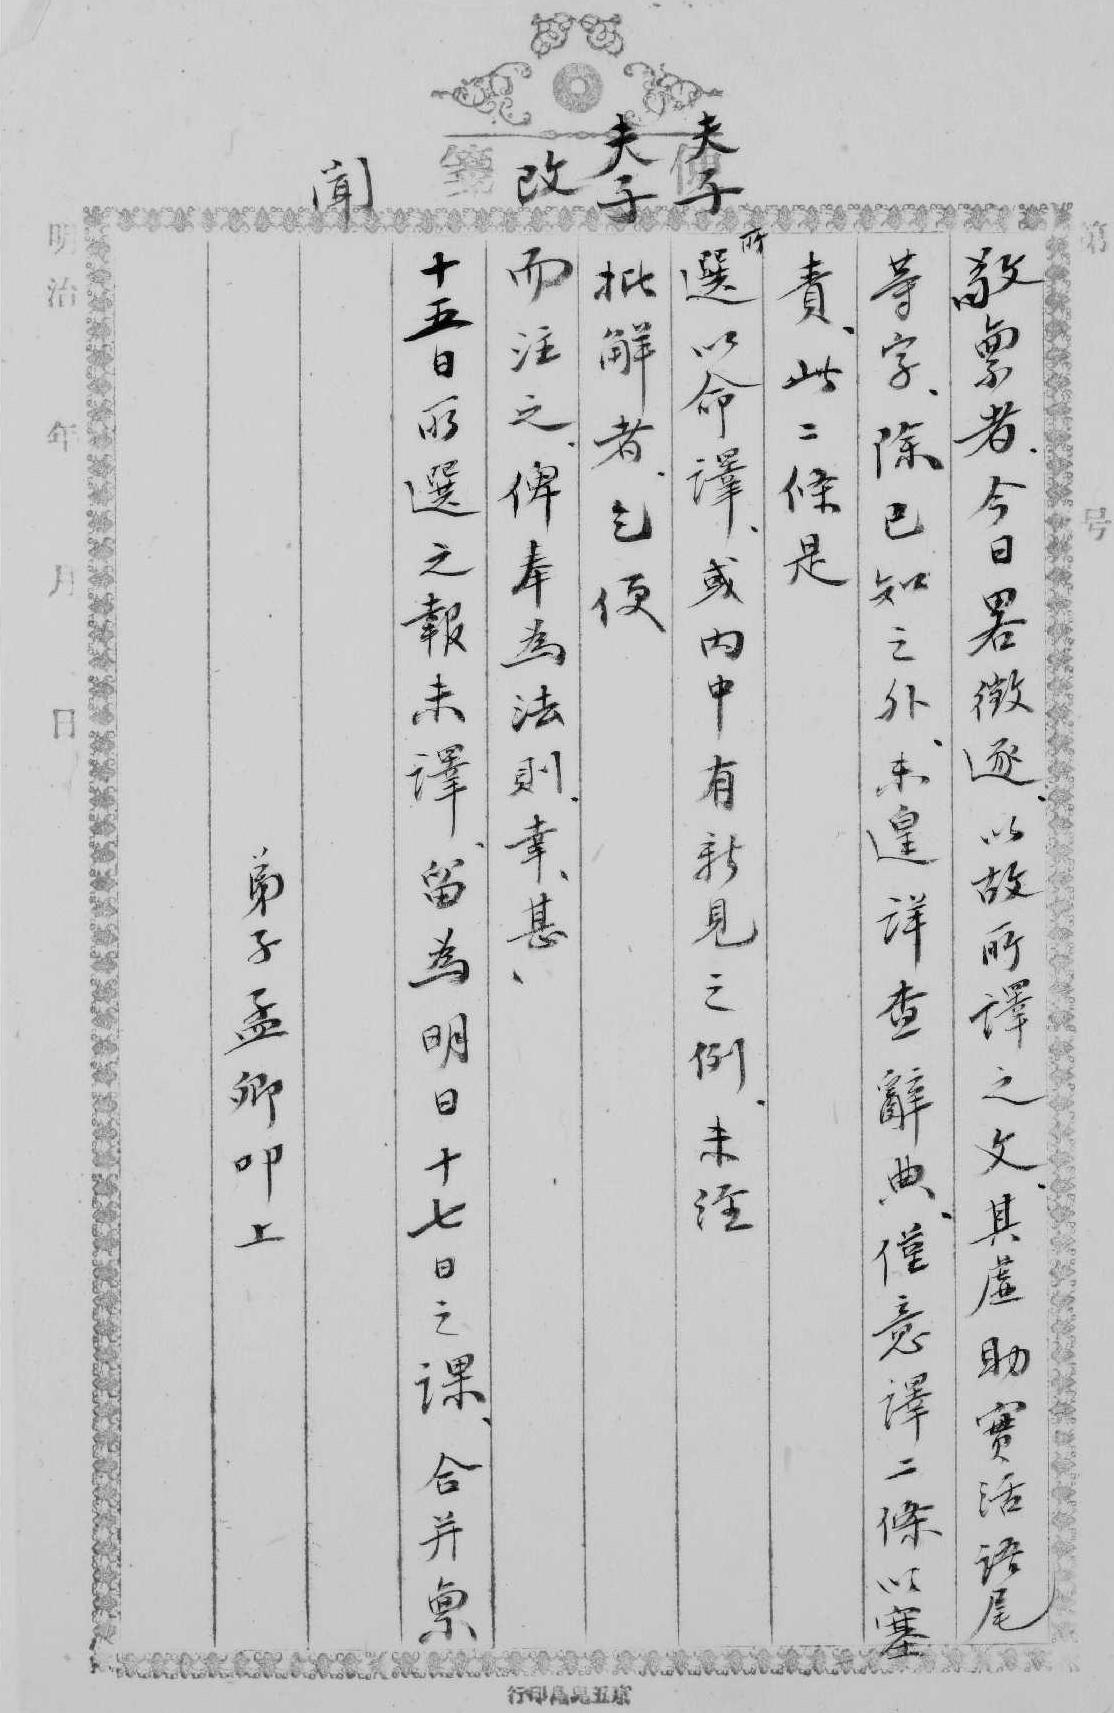 傳箋
第 号
敬稟者、今日畧徴逐、以故所譯之文、其虛助實活語尾
等字、除已知之外、未遑詳查辭典、僅意譯二條以塞
責、此二條是
夫子所選以命譯、或内中有新見之例、未經
夫子批解者、乞便
改而注之、俾奉為法則、幸甚、
十五日所選之報未譯、留為明日十七日之課、合并稟
聞
弟子孟卿叩上
明治 年 月 日